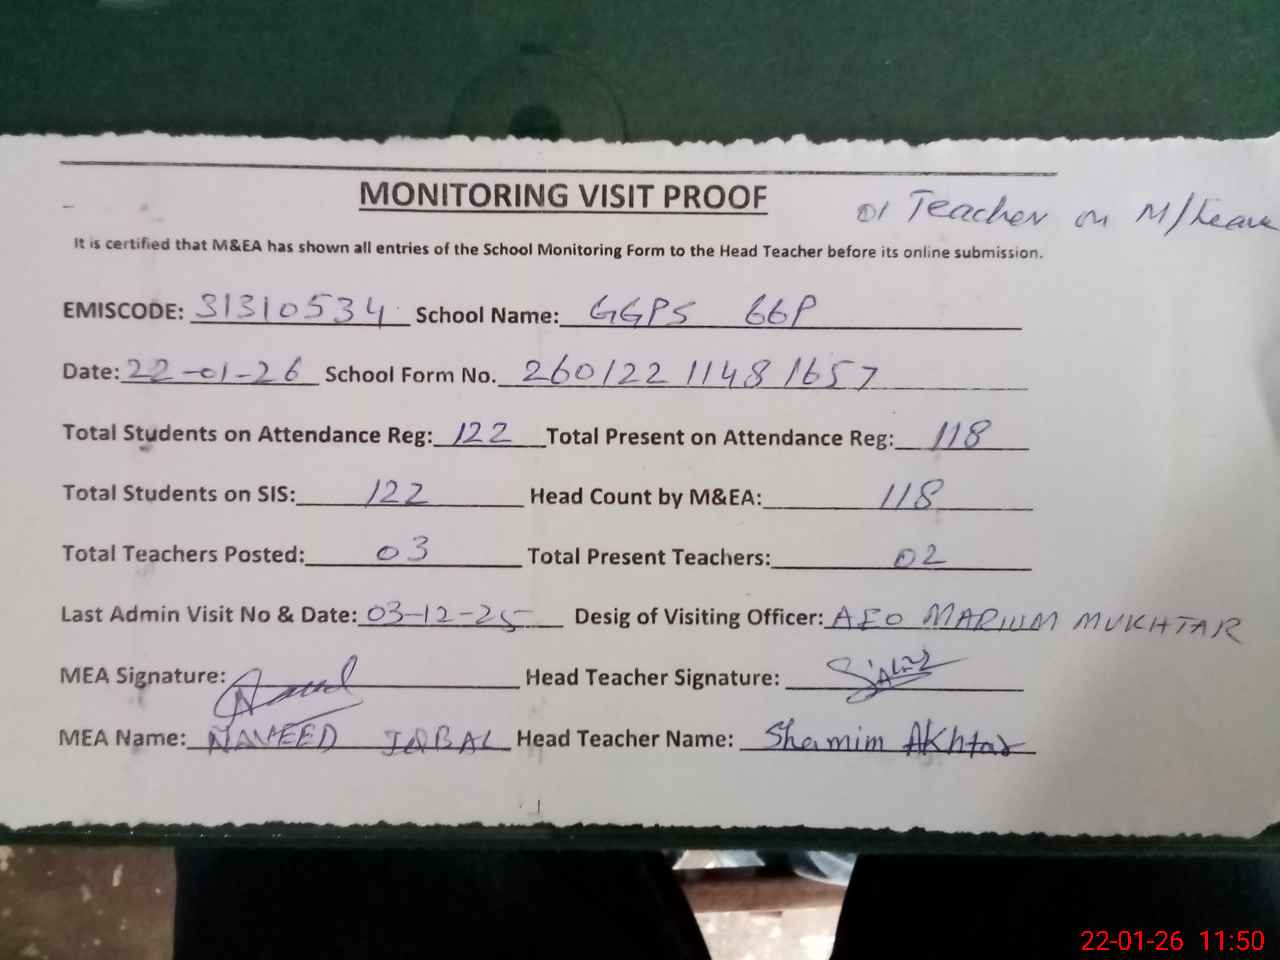 MONITORING VISIT PROOF
01 Teacher on M/Leave
It is certified that M&EA has shown all entries of the School Monitoring Form to the Head Teacher before its online submission.
EMISCODE: 31310534 School Name: GGPS 66P
Date: 22-01-26 School Form No. 260122 1148 1657
Total Students on Attendance Reg: 122 Total Present on Attendance Reg: 118
Total Students on SIS: 122 Head Count by M&EA: 118
Total Teachers Posted: 03 Total Present Teachers: 02
Last Admin Visit No & Date: 03-12-25 Desig of Visiting Officer: AEO MARIUM MUKHTAR
MEA Signature: Head Teacher Signature:
MEA Name: NAVEED IQBAL Head Teacher Name: Shamim Akhtar
22-01-26 11:50